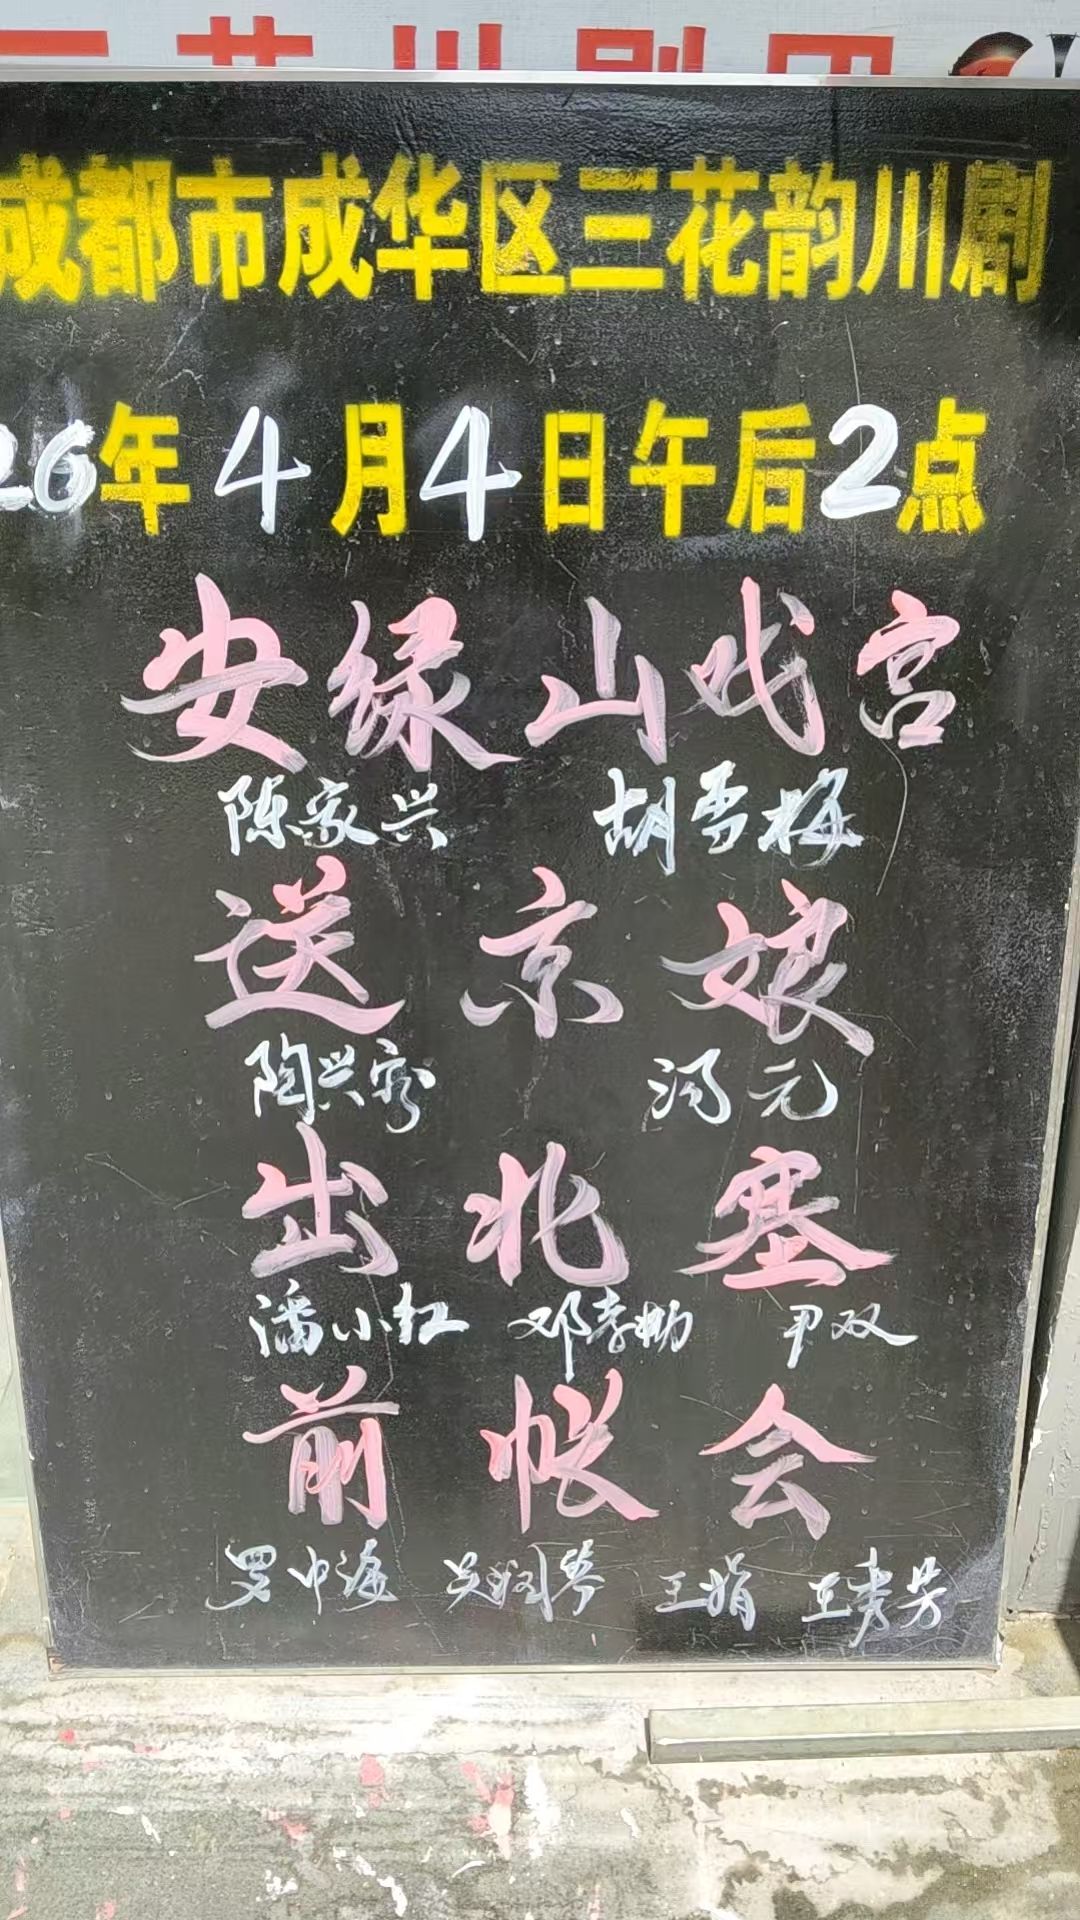 成都市成华区三花韵川剧
26年4月4日午后2点
安绿山戏宫
陈家兴 胡雪梅
送京娘
陶兴容 汤元
出北塞
潘小红 邓孝 尹双
前帐会
罗中海 王娟 王孝芳